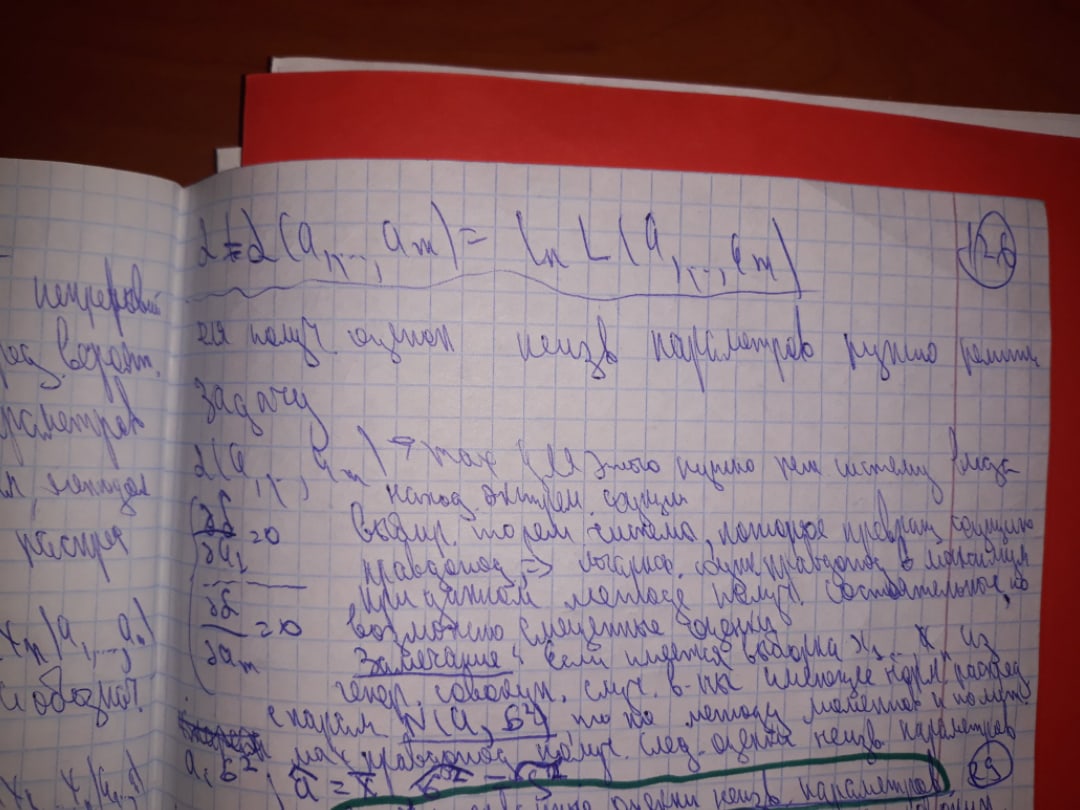 непрерывн
вероят.
параметров
методом
распред
x_n|a_1,...,a_n)
обознач.
𝓛=𝓛(a_1,...,a_m)= ln L(a_1,...,a_m)
28
для получ. оценок неизв параметров нужно решить
задачу
𝓛(a_1,..,a_m) → max для этого нужно реш систему
наход. экстрем. функции
∂𝓛/∂a_1 =0 выбир. то реш системы, которое превращ функцию
правдопод => логариф. функ правдопод в максимум
∂𝓛/∂a_m =0 при данном методе получ. состоятельные, но
возможно смещенные оценки
Замечание: если имеется выборка x_1...x_n из
генер. совокуп. случ. в-ны имеющие норм распред
с парам N(a, б²) то по методу моментов и по мет.
мах правдопод получ. след. оценки неизв параметров
a, б²; a = x̄
29
оценки неизв. параметров